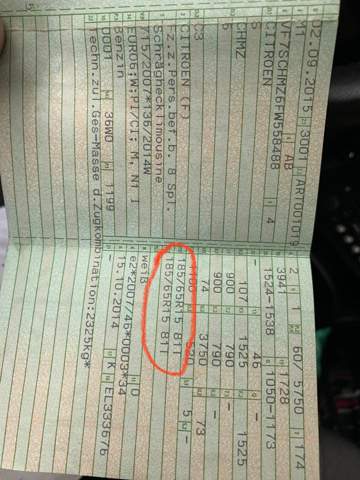 02.09.2015 3001 ART001019
M1
VF7SCHMZ6FW558488
CITROEN
S
CHMZ
C3
CITROEN (F)
Fz.z.Pers.bef.b. 8 Spl.
Schräghecklimousine
715/2007*136/2014W
EURO6;W;PI/CI; M, N1 I
Benzin
0001 36W0 1199
Techn.zul.Ges-Masse d.Zugkombination:2325kg*
2 1 60/ 5750 174
3941 1728
1524-1538 1050-1173
- 46 -
1525 1525
900 790 -
900 790 -
74 3750 73
530 5 -
185/65R15 81T
185/65R15 81T
weiß 0
e2*2007/46*0003*34
15.10.2014 K EL333676